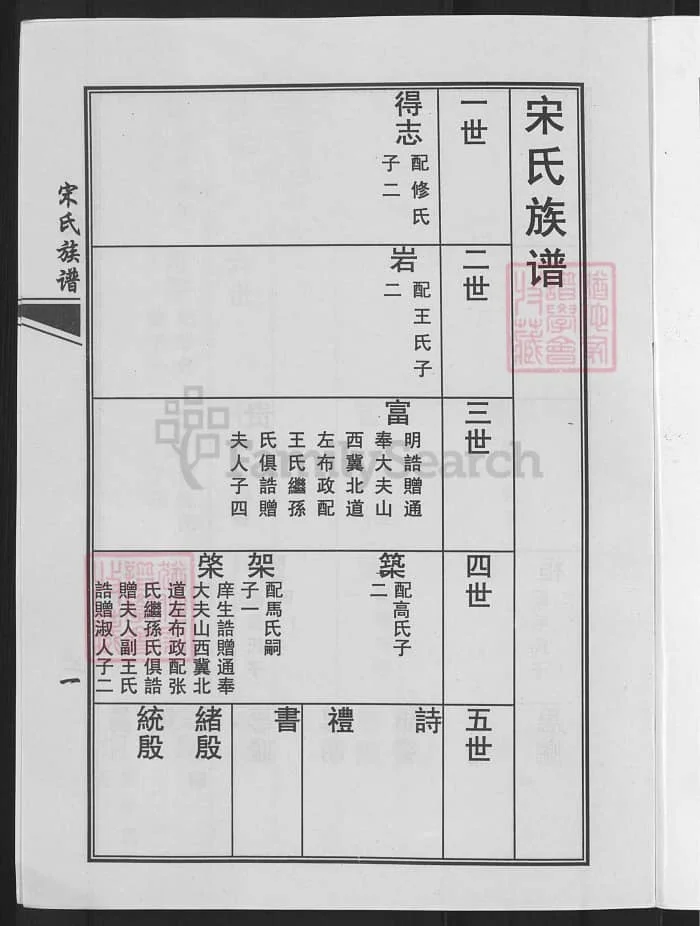 宋氏族谱
一世
得志
配修氏
子二
二世
岩
配王氏子
二
三世
富
明誥贈通
奉大夫山
西冀北道
左布政配
王氏繼孫
氏俱誥贈
夫人子四
四世
築
配高氏子
二
架
配馬氏嗣
子一
棨
庠生誥贈通奉
大夫山西冀北
道左布政配张
氏繼孫氏俱誥
贈夫人副王氏
誥贈淑人子二
五世
詩
禮
書
緒殷
統殷
宋氏族谱
一
FamilySearch